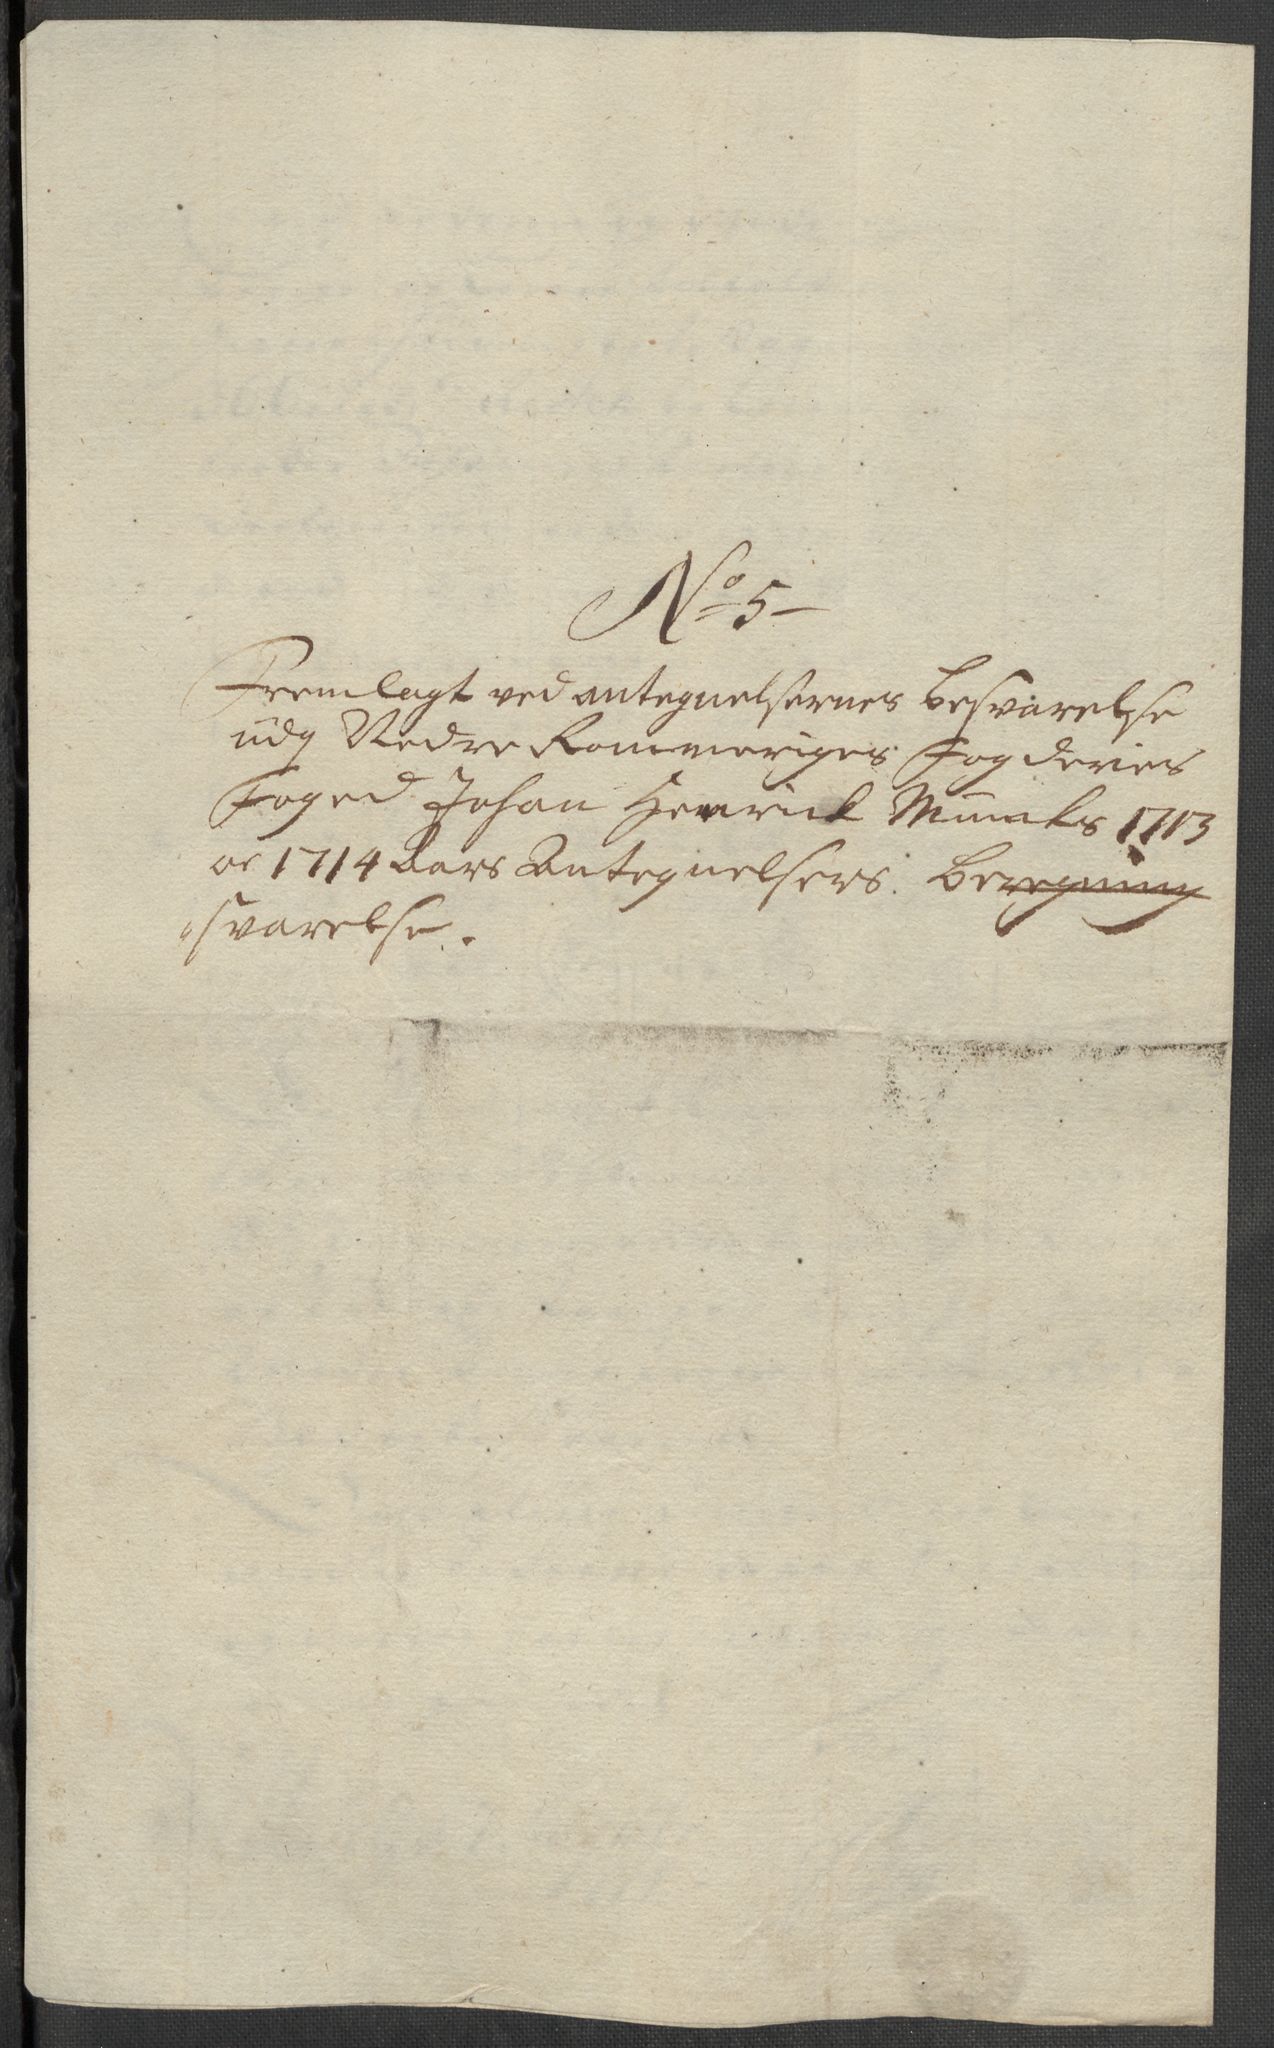 No 5
Fremlagt ved antegnelsernes besvarelse
udj Nedre Rommeriges Fogderies
Foged Johan Henrich Muncks 1713
oc 1714 Aars Antegnelsers. Beregning
svarelse.